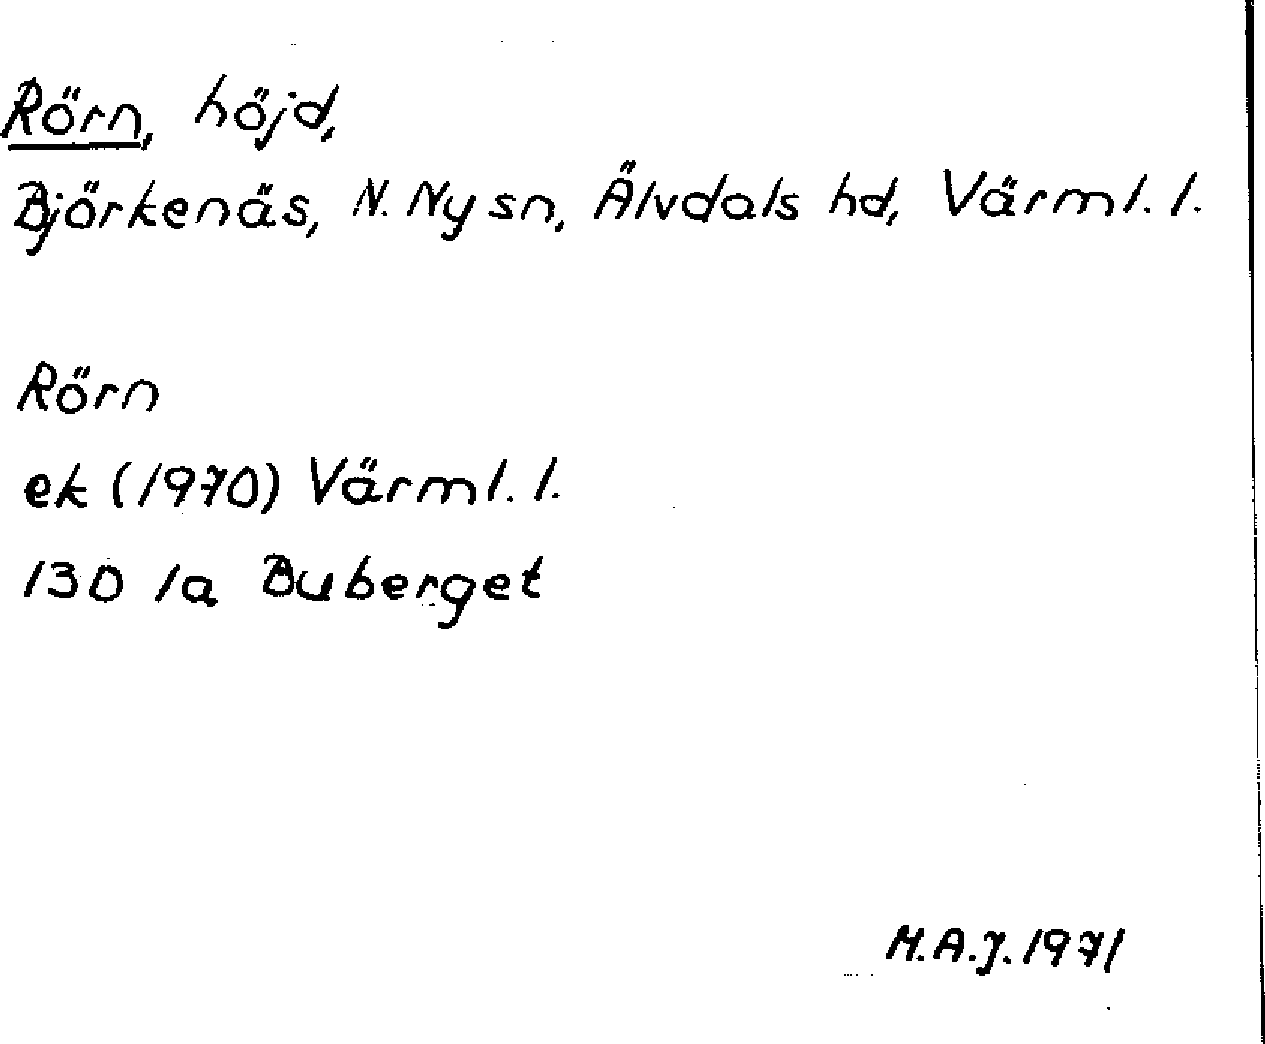 Rörn, höjd,
Björkenäs, N. Ny sn, Älvdals hd, Värml. l.
Rörn
ek (1970) Värml. l.
130 1a Buberget
M.A.J. 1971